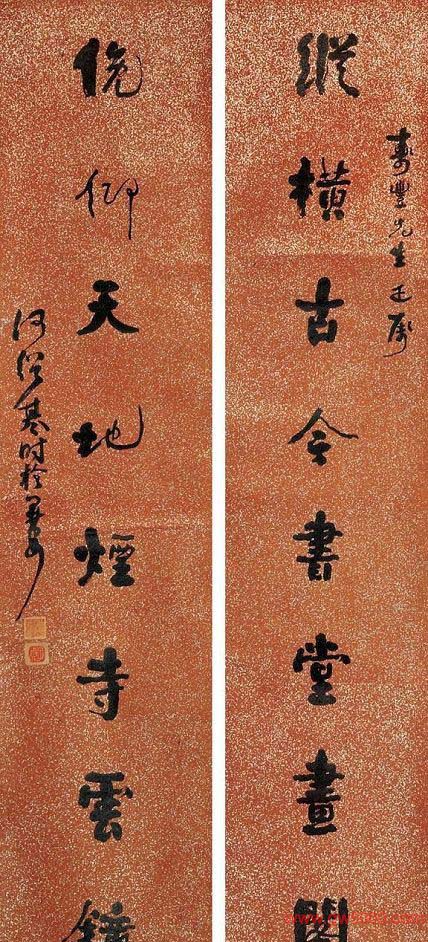 壽豐先生正屬
縱橫古今書堂畫閣
俛仰天地煙寺雲鐘
何紹基時於